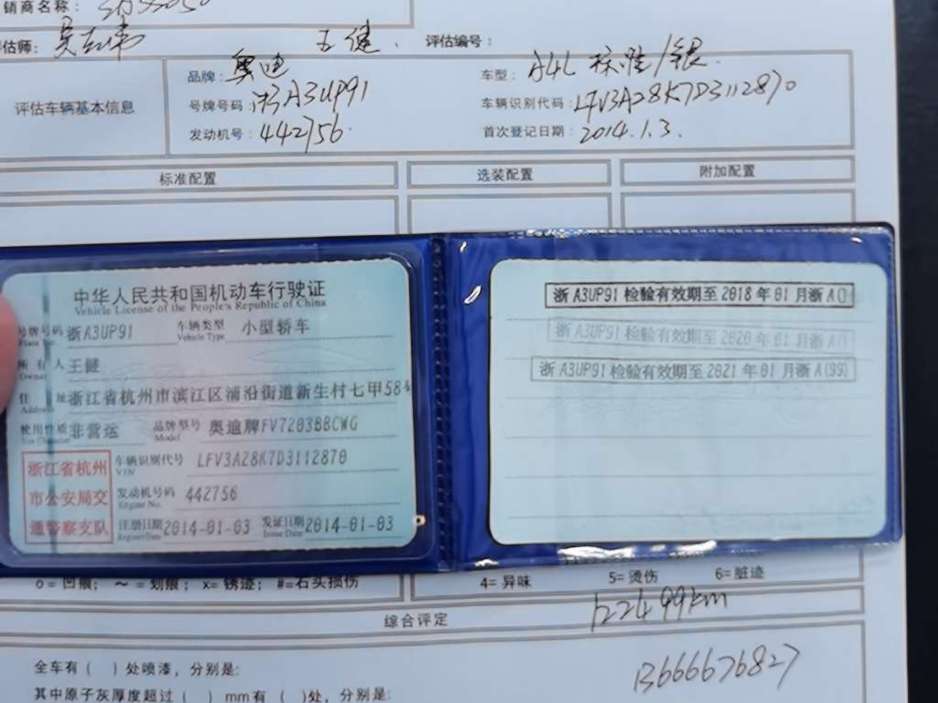 销商名称:
估师: 王健. 评估编号:
评估车辆基本信息
品牌: 奥迪 车型: A4L 标准/银.
号牌号码: 浙A3UP91 车辆识别代码: LFV3A28K7D3112870
发动机号: 442756 首次登记日期: 2014.1.3.
标准配置 选装配置 附加配置
中华人民共和国机动车行驶证
Vehicle License of the People's Republic of China
号牌号码 浙A3UP91 车辆类型 小型轿车
Plate No. Vehicle Type
所有人 王健
Owner
住址 浙江省杭州市滨江区浦沿街道新生村七甲584
Address
使用性质 非营运 品牌型号 奥迪牌FV7203BBCWG
Use Character Model
浙江省杭州
市公安局交
通警察支队
车辆识别代号 LFV3A28K7D3112870
VIN
发动机号码 442756
Engine No.
注册日期 2014-01-03 发证日期 2014-01-03
Register Date Issue Date
浙A3UP91 检验有效期至2018年01月浙A()
浙A3UP91 检验有效期至2020年01月浙A
浙A3UP91 检验有效期至2021年01月浙A(99)
o=凹痕; ~=划痕; x=锈迹; #=石头损伤
4=异味 5=烫伤 6=脏迹
综合评定
122499km
全车有( )处喷漆,分别是:
13666676827
其中原子灰厚度超过( )mm有( )处,分别是: